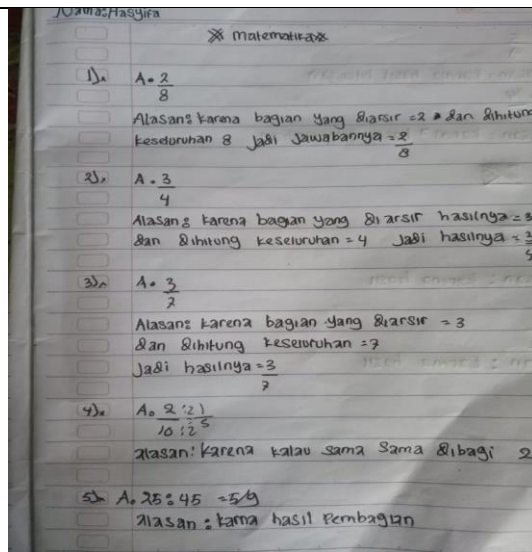 Nama: Hasyifa
※ matematika※
1). A. 2/8
Alasan: karena bagian yang diarsir = 2 dan dihitung
keseluruhan 8 jadi jawabannya = 2/8
2). A. 3/4
Alasan: karena bagian yang diarsir hasilnya = 3
dan dihitung keseluruhan = 4 jadi hasilnya = 3/
3). A. 3/7
Alasan: karena bagian yang diarsir = 3
dan dihitung keseluruhan = 7
Jadi hasilnya = 3/7
4). A. 2:2 1
10:2 5
alasan: karena kalau sama sama dibagi 2
5). A. 25:45 = 5/9
alasan: karna hasil Pembagian